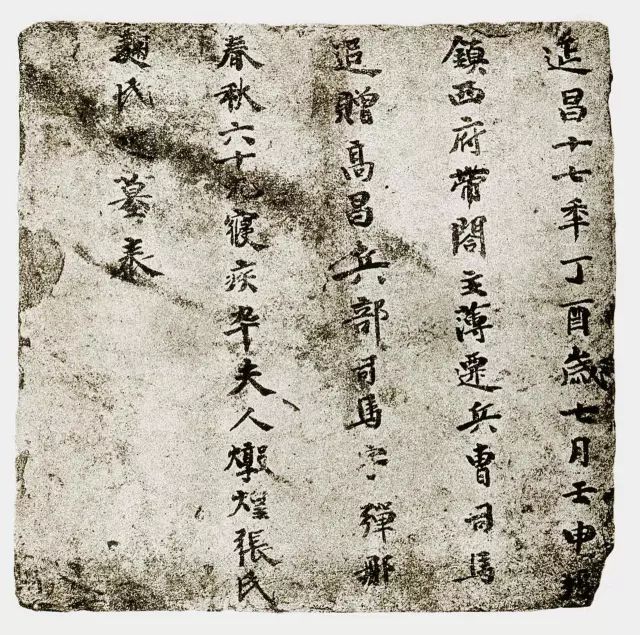 延昌十七年丁酉歲七月壬申
鎮西府帶閤主薄遷兵曹司馬
追贈高昌兵部司馬字彈那
春秋六十九寢疾卒夫人燉煌張氏
麹氏墓表